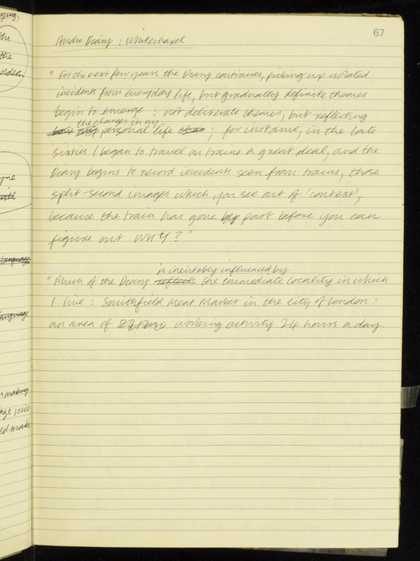 67
Audio Diary : Whitechapel
" For the next few years the Diary continues, picking up isolated
incidents from everyday life, but gradually definite themes
begin to emerge : not deliberate themes, but reflecting
the changes in my
personal life ; for instance, in the late
sixties I began to travel on trains a great deal, and the
Diary begins to record incidents seen from trains, those
split-second images which you see out of 'context',
because the train has gone past before you can
figure out WHY ? "
is inevitably influenced by
" Much of the Diary reflects the immediate locality in which
I live : Smithfield Meat Market in the City of London :
an area of working activity 24 hours a day
the
the
language
making